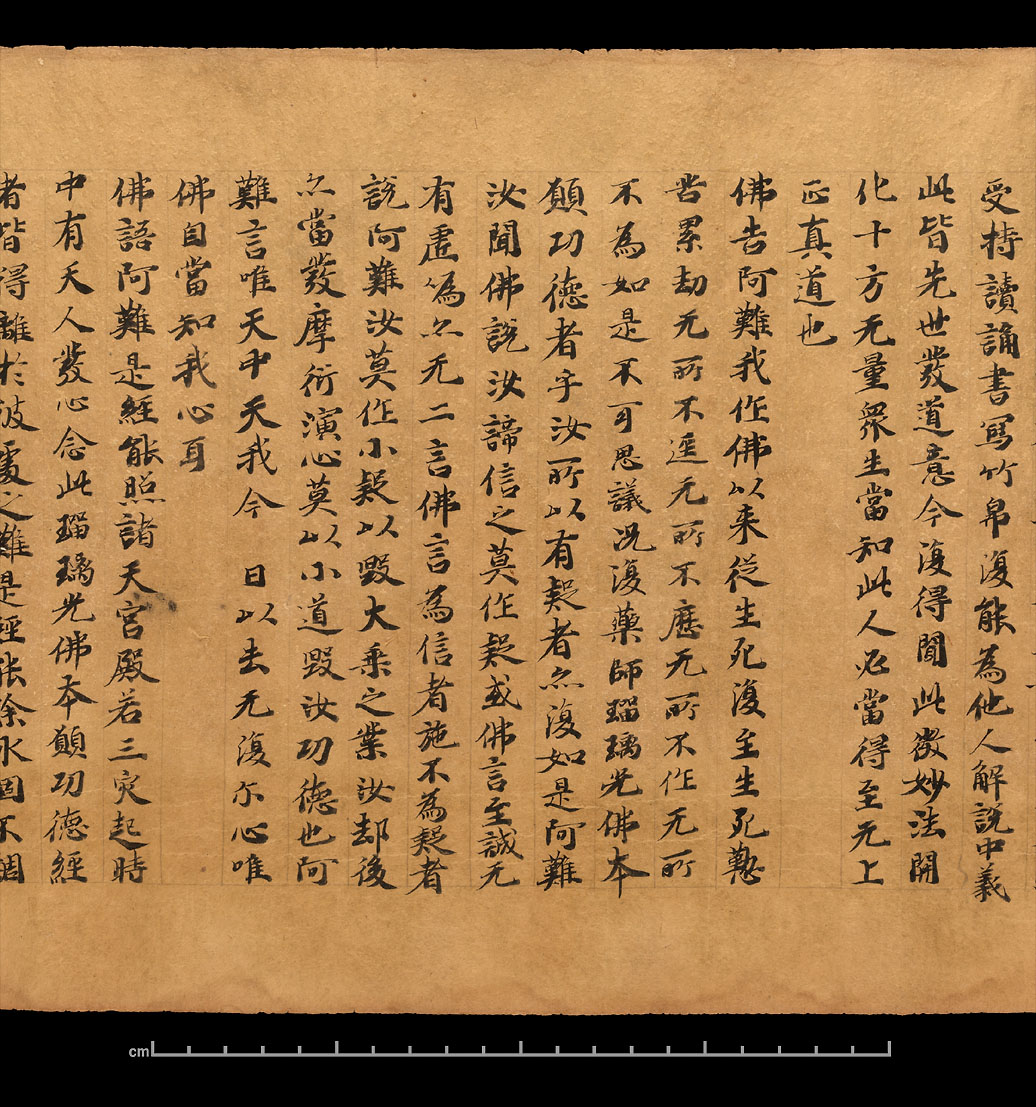 受持讀誦書寫竹帛復能為他人解說中義
此皆先世發道意今復得聞此微妙法開
化十方无量眾生當知此人必當得至无上
正真道也
佛告阿難我作佛以来從生死復至生死懃
苦累劫无所不逕无所不歷无所不作无所
不為如是不可思議況復藥師瑠璃光佛本
願功德者乎汝所以有疑者亦復如是阿難
汝聞佛說汝諦信之莫作疑或佛言至誠无
有虛偽亦无二言佛言為信者施不為疑者
說阿難汝莫作小疑以毀大乘之業汝却後
亦當發摩衍演心莫以小道毀汝功德也阿
難言唯天中天我今日以去无復尒心唯
佛自當知我心耳
佛語阿難是經能照諸天宮殿若三灾起時
中有天人發心念此瑠璃光佛本願功德經
者皆得離於彼處之難是經能除水固不調
cm